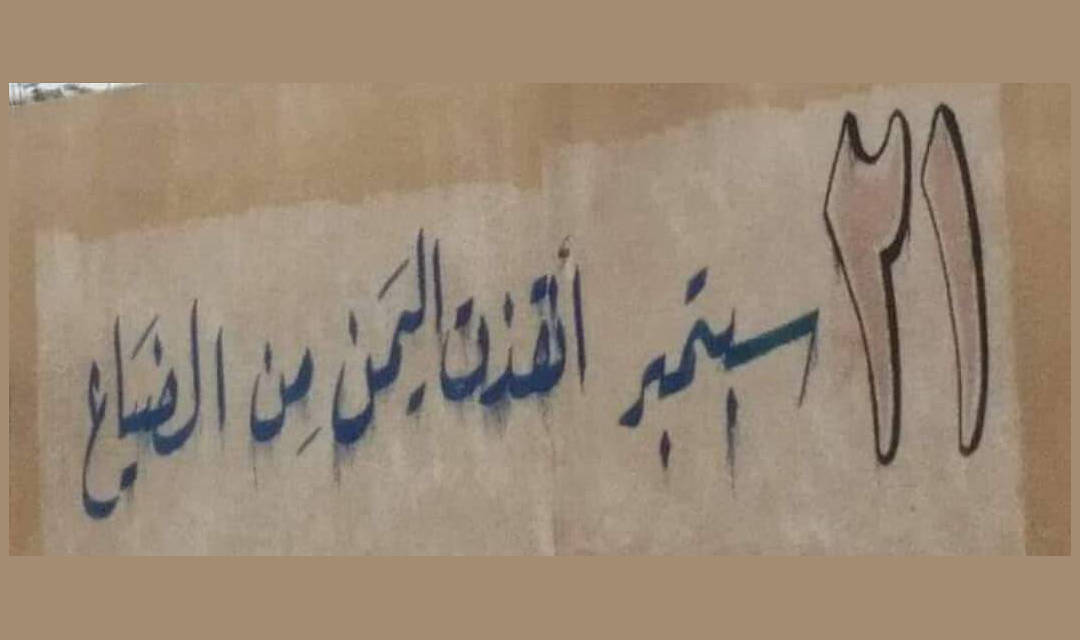 ٢١ سبتمبر أنقذت اليمن مِن الضياع